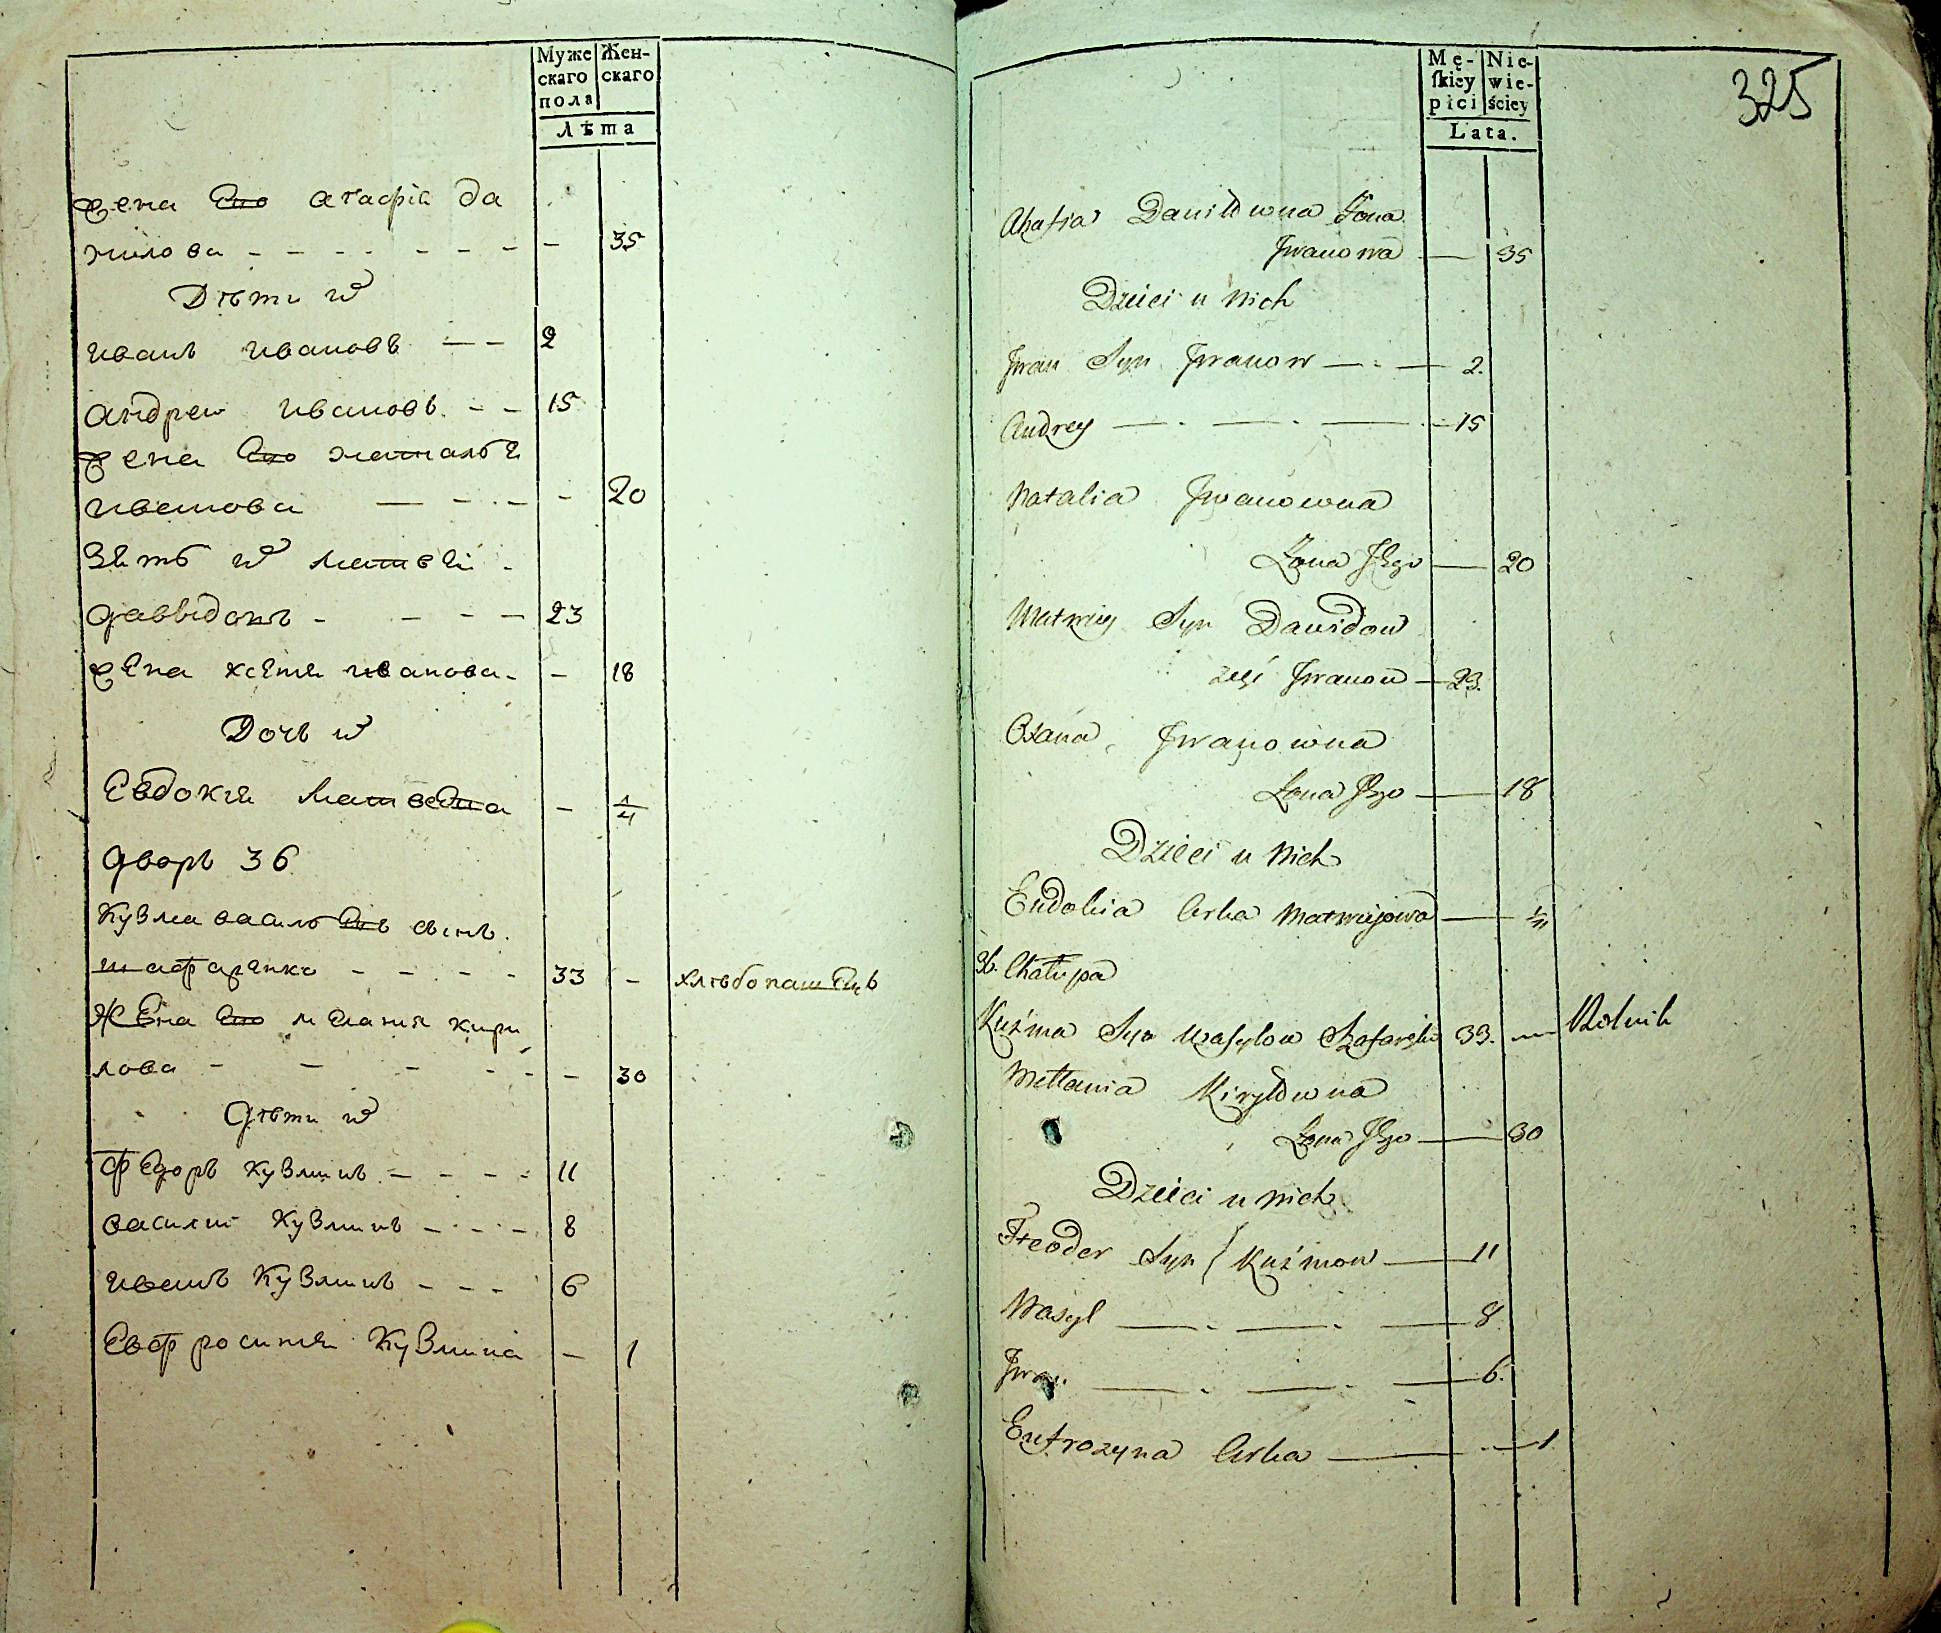 Муже
скаго
пола
Жен-
скаго
Лѣта
жена Его агафіа да
нилова - - - - - - - 35
Дѣти иⷯ
иванъ ивановъ — — 2
андреи ивановъ - - 15
жена Его наталъЯ
иванова — - - - - 20
Зять иⷯ матвеи -
давыдовъ - - - - 23
жЕна ксЕния иванова - - 18
Дочь иⷯ
Евдокия матвеЕва - 1/4
дворъ 36
Кузма васильЕвъ сынъ
шафарЕнко - - - - 33 - хлѣбопашЕцъ
ЖЕна Его мЕлания кири
лова - - - - - - 30
дѣти иⷯ
фЕдоръ кузминъ - - - - 11
василии кузминъ - - - - 8
иванъ кузминъ - - - 6
Евфросиния кузмина - 1
Mę-
ſkiey
płci
Nie-
wie-
ściey
Lata.
325
Ahafia Daniłowna Żona
Jwanowa — 35
Dzieci u nich
Jwan Syn Jwanow — - — 2.
Andrey — - — - — 15
Natalia Jwanowna
Żona Jego — 20
Matwiey Syn Dawidow
zięć Jwanow — 23.
Oxana Jwanowna
Żona Jego — 18
Dzieci u nich
Eudokia Corka Matwiejowa — 1/4
36. Chałupa
Kuźma Syn Wasylow Szafareńko 33. — Rolnik
Mełania Kiryłowna
Żona Jego — 30
Dzieci u nich
Fteoder Syn Kuźmow — 11
Wasyl — - — - — 8
Jwan — - — - — 6.
Eufrozyna Corka — - — 1